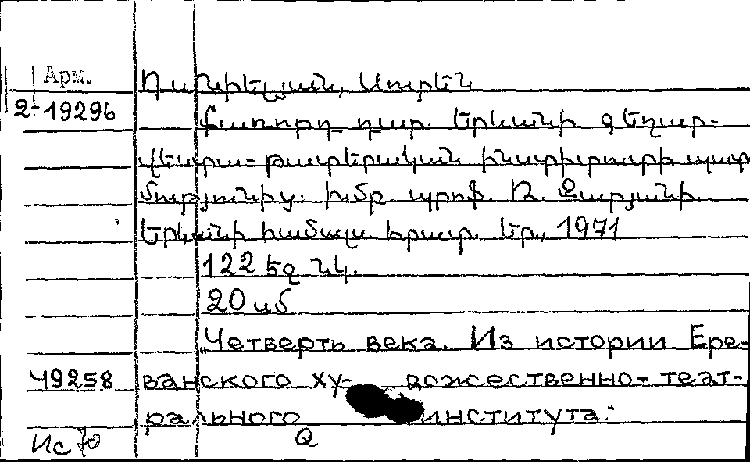 Арм.
2-19296
Դանիելյան, Սուրեն
Քառորդ դար. Երևանի գեղար-
վեստա-թատերական ինստիտուտի պատ
մությունից. Խմբ. պրոֆ. Ռ. Զարյանի
Երևանի համալս. հրատ. Եր., 1971
122 եջ նկ.
20 սմ
Четверть века. Из истории Ере-
49258 ванского ху- дожественно-теат-
рального института.